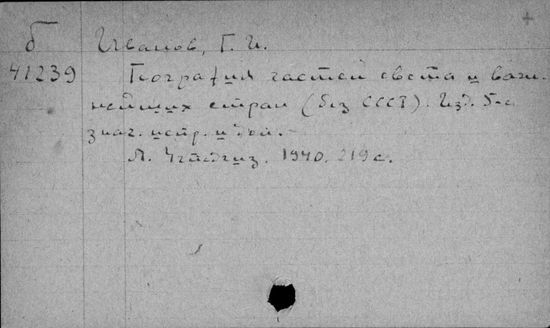 б Иванов, Г. И.
41239 География частей света и важ-
нейших стран (без СССР). Изд. 5-е
знач. испр. и доп. -
Л. Учпедгиз. 1940. 219 с.